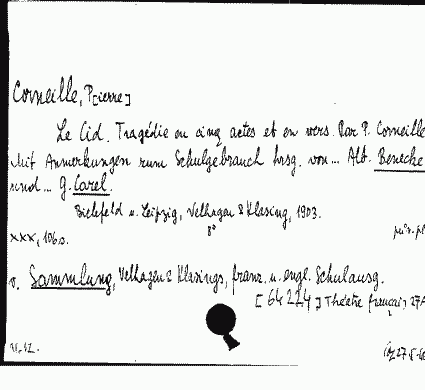 Corneille, P[ierre]
Le Cid. Tragédie en cinq actes et en vers. Par P. Corneille
Mit Anmerkungen zum Schulgebrauch hrsg. von... Alb. Benecke
und... G. Carel.
Bielefeld u. Leipzig, Velhagen & Klasing, 1903.
8°
XXX, 106 S.
v. Sammlung, Velhagen & Klasings, franz. u. engl. Schulausg.
[64224] Théâtre français 27A